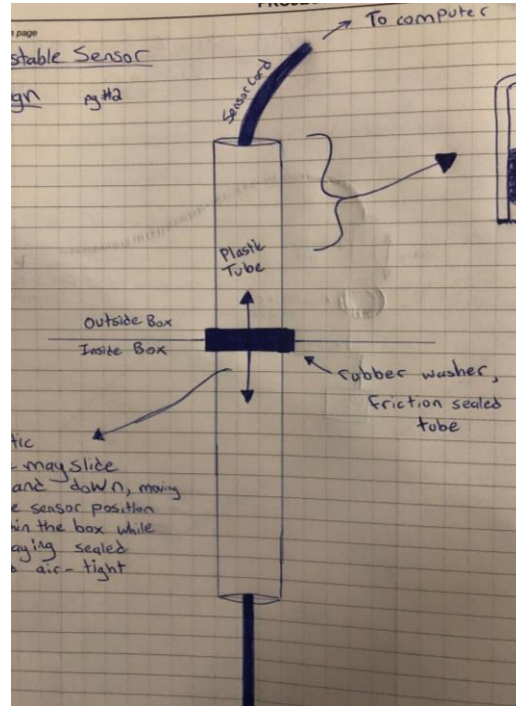 page
To computer
stable Sensor
gn pg#2
Sensor Cord
Plastic
Tube
Outside Box
Inside Box
rubber washer,
Friction sealed
tube
tic
may slide
and down, moving
e sensor position
hin the box while
aying sealed
air-tight